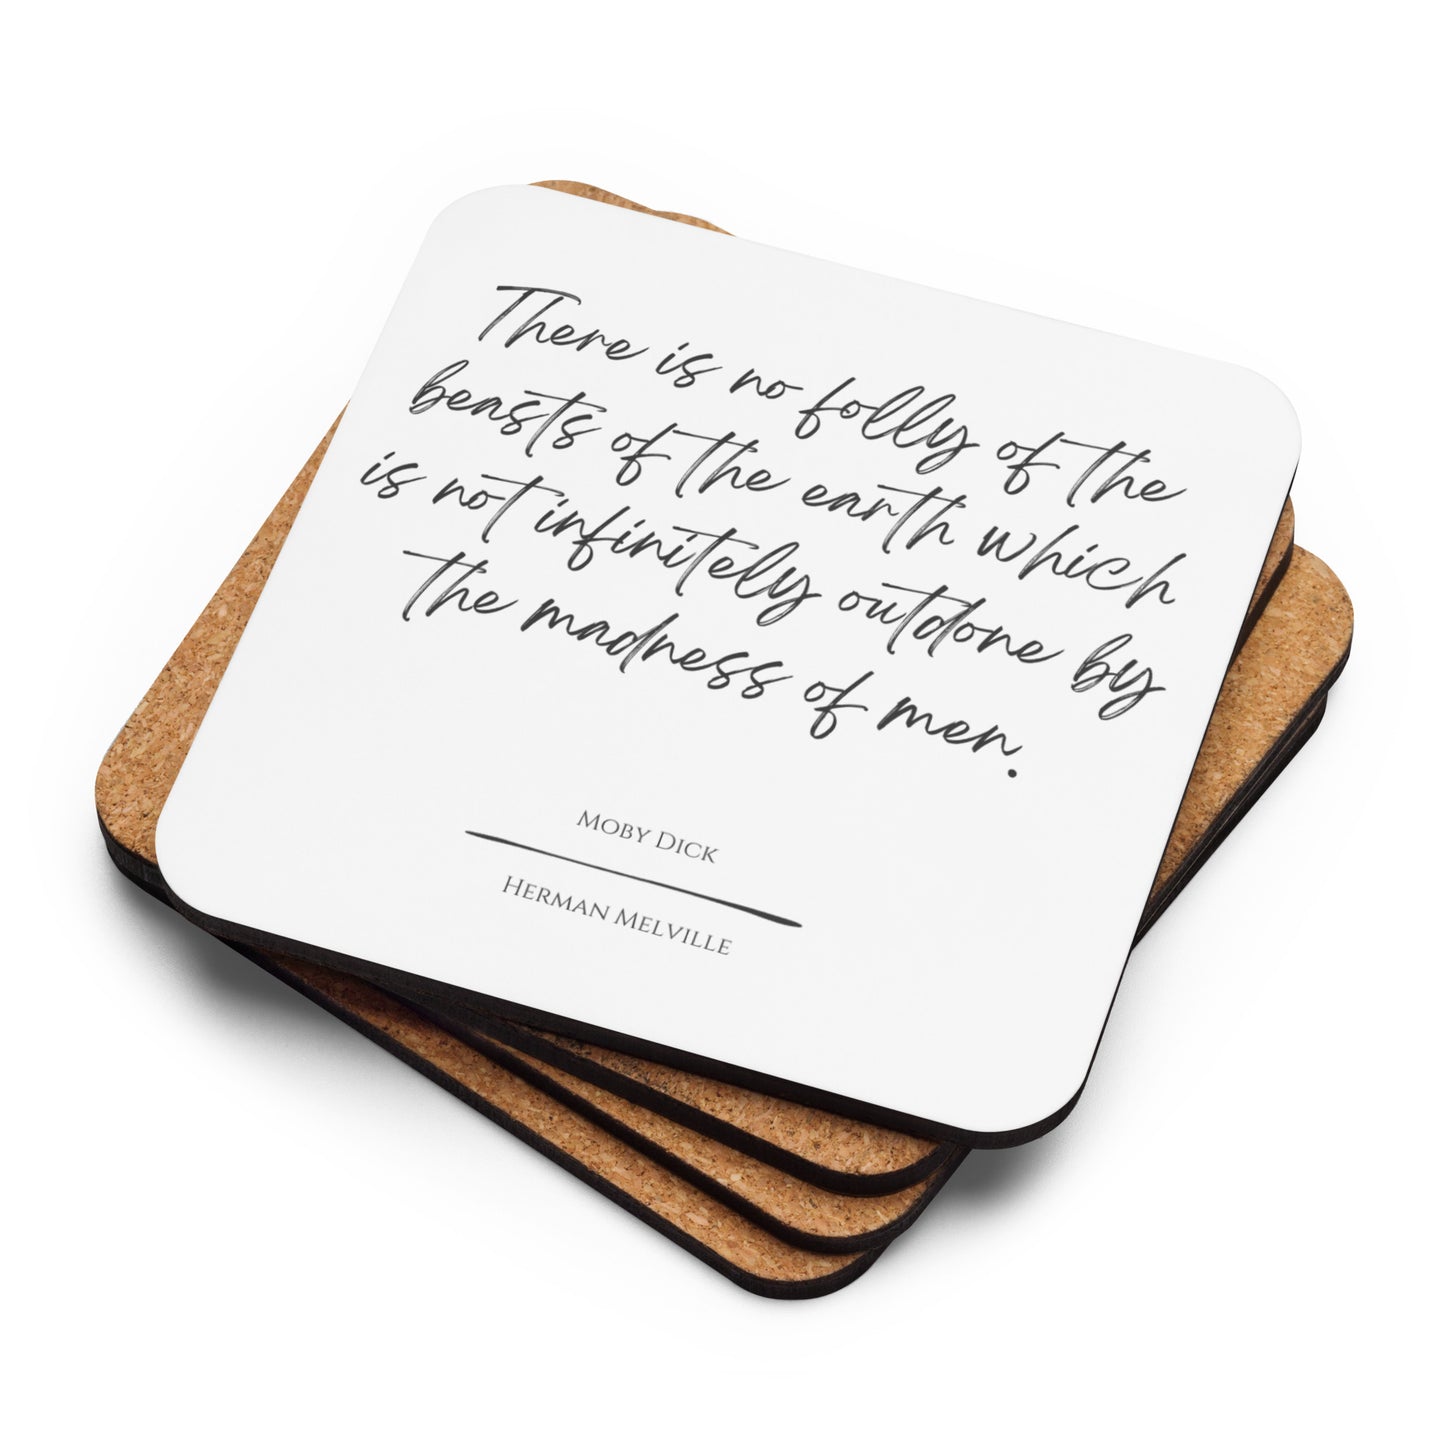 There is no folly of the
beasts of the earth which
is not infinitely outdone by
the madness of men.
Moby Dick
Herman Melville